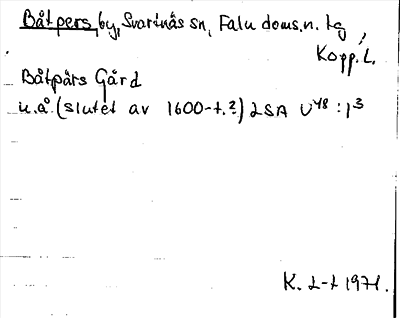 Båtpers, by, Svartnäs sn, Falu doms.n. tg,
Kopp.L.
Båtpärs Gård
u.å. (slutet av 1600-t.?) LSA U48:13
K. L-t 1971.